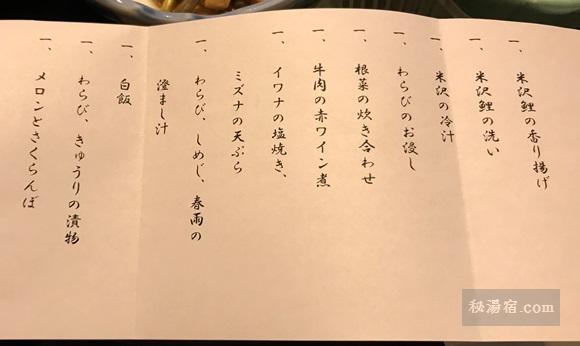 一、米沢鯉の香り揚げ
一、米沢鯉の洗い
一、米沢の冷汁
一、わらびのお浸し
一、根菜の炊き合わせ
一、牛肉の赤ワイン煮
一、イワナの塩焼き、
ミズナの天ぷら
一、わらび、しめじ、春雨の
澄まし汁
一、白飯
一、わらび、きゅうりの漬物
一、メロンとさくらんぼ
秘湯宿.com